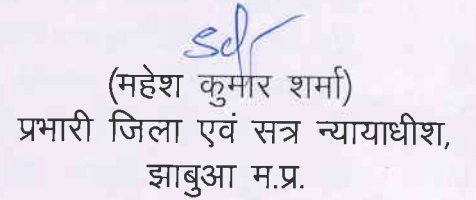 sd/
(महेश कुमार शर्मा)
प्रभारी जिला एवं सत्र न्यायाधीश,
झाबुआ म.प्र.